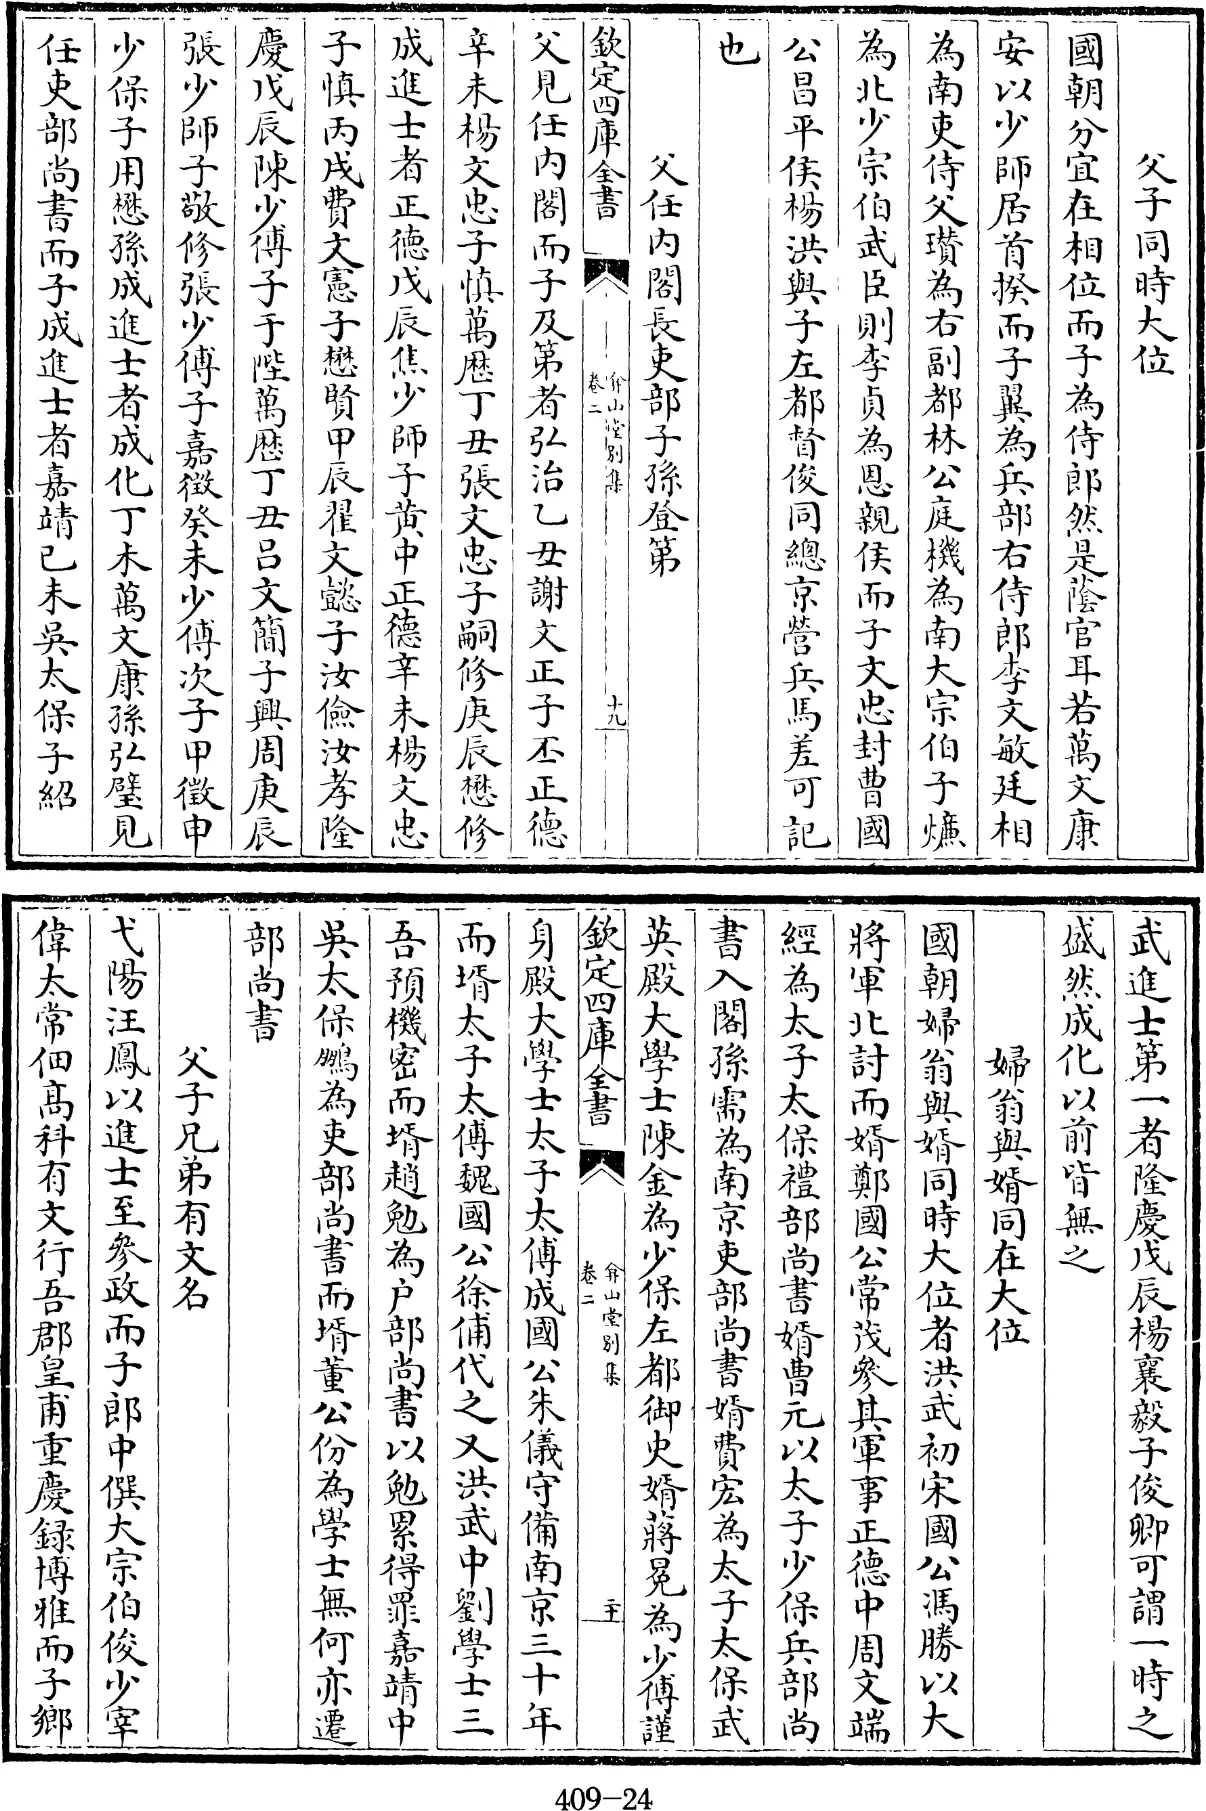 父子同時大位
國朝分宜在相位而子為侍郎然是蔭官耳若萬文康
安以少師居首揆而子翼為兵部右侍郎李文敏廷相
為南吏侍父瓚為右副都林公庭機為南大宗伯子爌
為北少宗伯武臣則李貞為恩親侯而子文忠封曹國
公昌平侯楊洪與子左都督俊同總京營兵馬差可記
也
父任内閣長吏部子孫登第
欽定四庫全書
弇山堂别集
卷二
十九
父見任内閣而子及第者弘治乙丑謝文正子丕正德
辛未楊文忠子慎萬厯丁丑張文忠子嗣修庚辰懋修
成進士者正德戊辰焦少師子黄中正德辛未楊文忠
子慎丙戌費文憲子懋賢甲辰翟文懿子汝儉汝孝隆
慶戊辰陳少傅子于陛萬厯丁丑吕文簡子興周庚辰
張少師子敬修張少傅子嘉徵癸未少傅次子甲徵申
少保子用懋孫成進士者成化丁未萬文康孫弘璧見
任吏部尚書而子成進士者嘉靖已未吳太保子紹
武進士第一者隆慶戊辰楊襄毅子俊卿可謂一時之
盛然成化以前皆無之
婦翁與婿同在大位
國朝婦翁與婿同時大位者洪武初宋國公馮勝以大
將軍北討而婿鄭國公常茂參其軍事正德中周文端
經為太子太保禮部尚書婿曹元以太子少保兵部尚
書入閣孫需為南京吏部尚書婿費宏為太子太保武
英殿大學士陳金為少保左都御史婿蔣冕為少傅謹
欽定四庫全書
弇山堂别集
卷二
二十
身殿大學士太子太傅成國公朱儀守備南京三十年
而壻太子太傅魏國公徐俌代之又洪武中劉學士三
吾預機密而壻趙勉為户部尚書以勉累得罪嘉靖中
吳太保鵬為吏部尚書而壻董公份為學士無何亦遷
部尚書
父子兄弟有文名
弋陽汪鳳以進士至參政而子郎中僎大宗伯俊少宰
偉太常佃髙科有文行吾郡皇甫重慶録博雅而子鄉
409-24